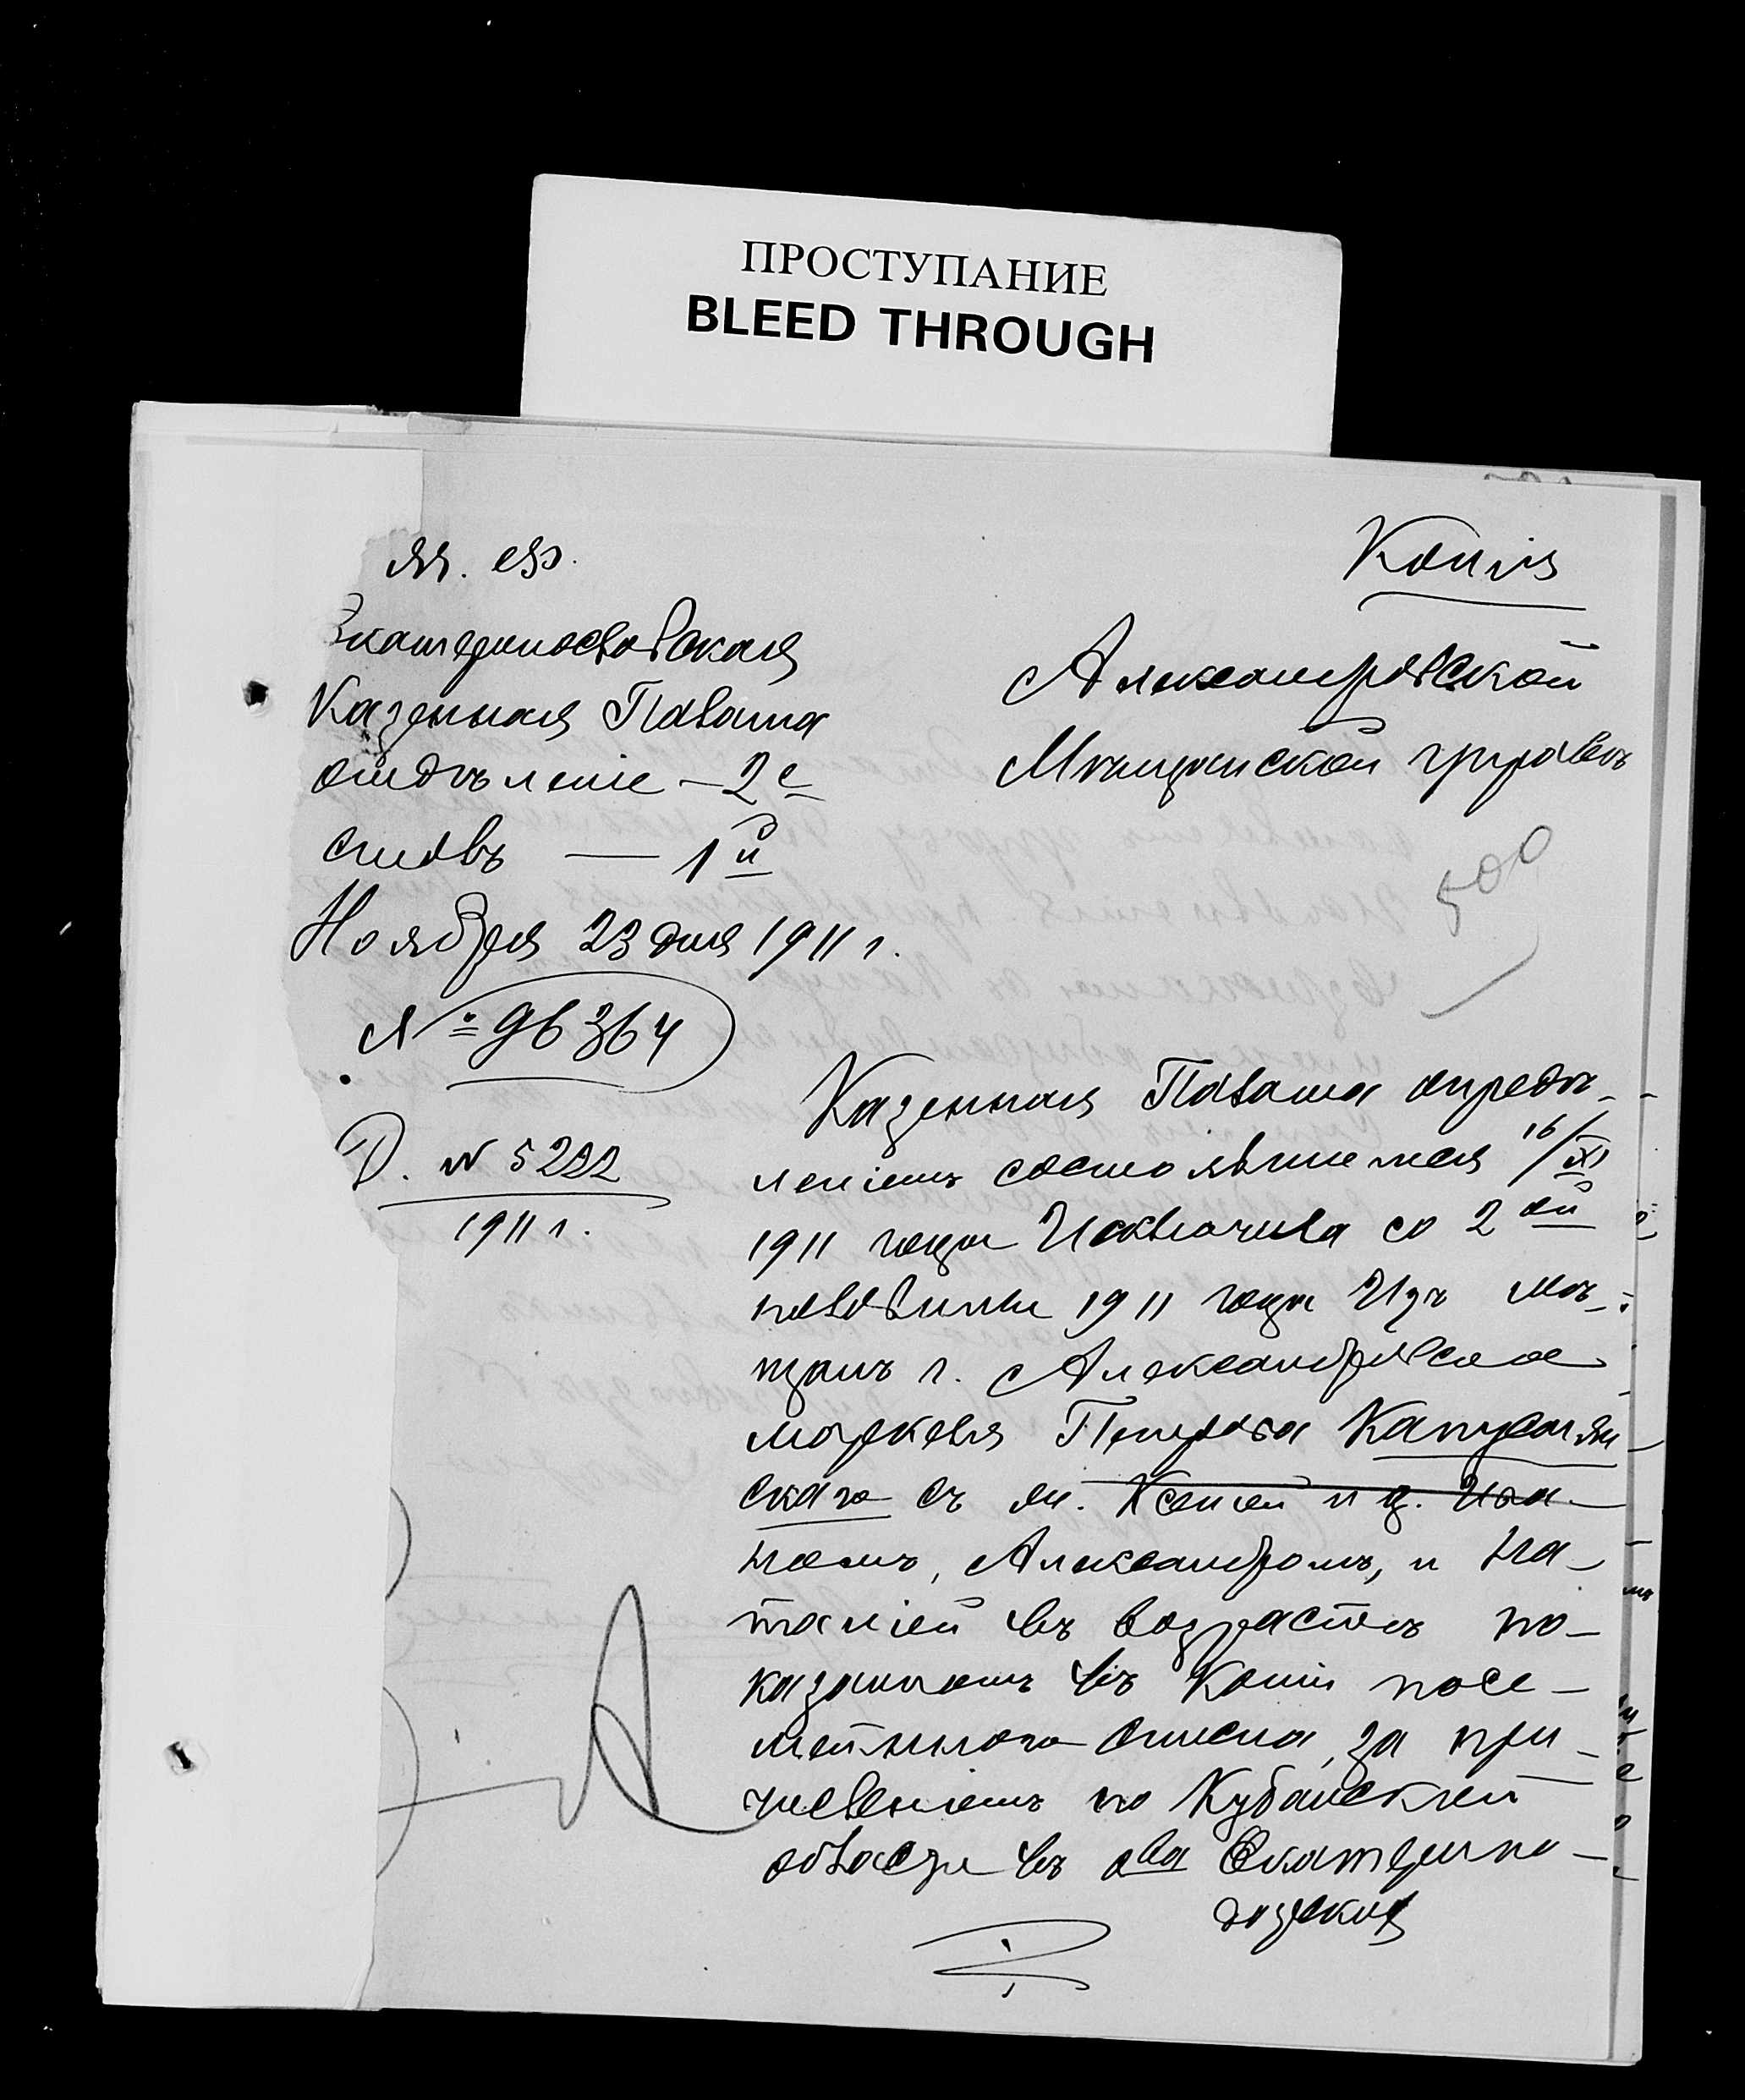 ПРОСТУПАНИЕ
BLEED THROUGH
М. Ф.
Екатеринославская
Казенная Палата
отдѣленіе — 2е
столъ — 1й
Ноября 23 дня 1911 г.
№ 96364
Д. № 5222
1911 г.
Копія
Александровской
Мѣщанской управѣ
500
Казенная Палата опредѣ-
леніемъ состоявшемся 16/XI
1911 года Исключила со 2ой
половины 1911 года Изъ мѣ-
щанъ г. Александровска
Петрова
скаго съ ж. Ксеніей и д. Ива-
номъ, Александромъ, и На-
таліей въ возрастѣ по-
казанномъ въ Копіи посе-
мейнаго списка, за при-
численіемъ по Кубанской
области въ о-ва Екатерино-
дарскія